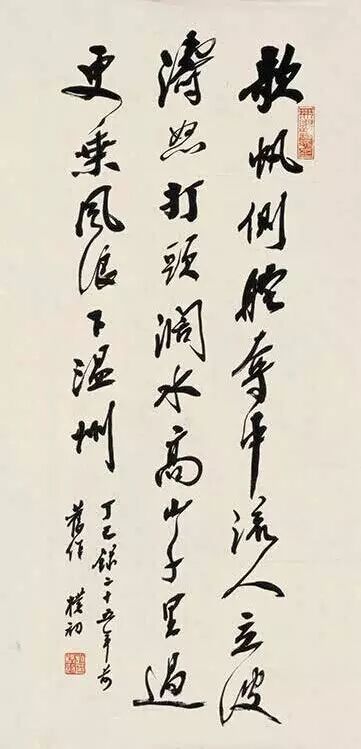 欹帆側舵奪中流人立波
濤怒打頭濶水高山千里過
更乘風浪下温州
丁巳録二十五年前
舊作 樸初